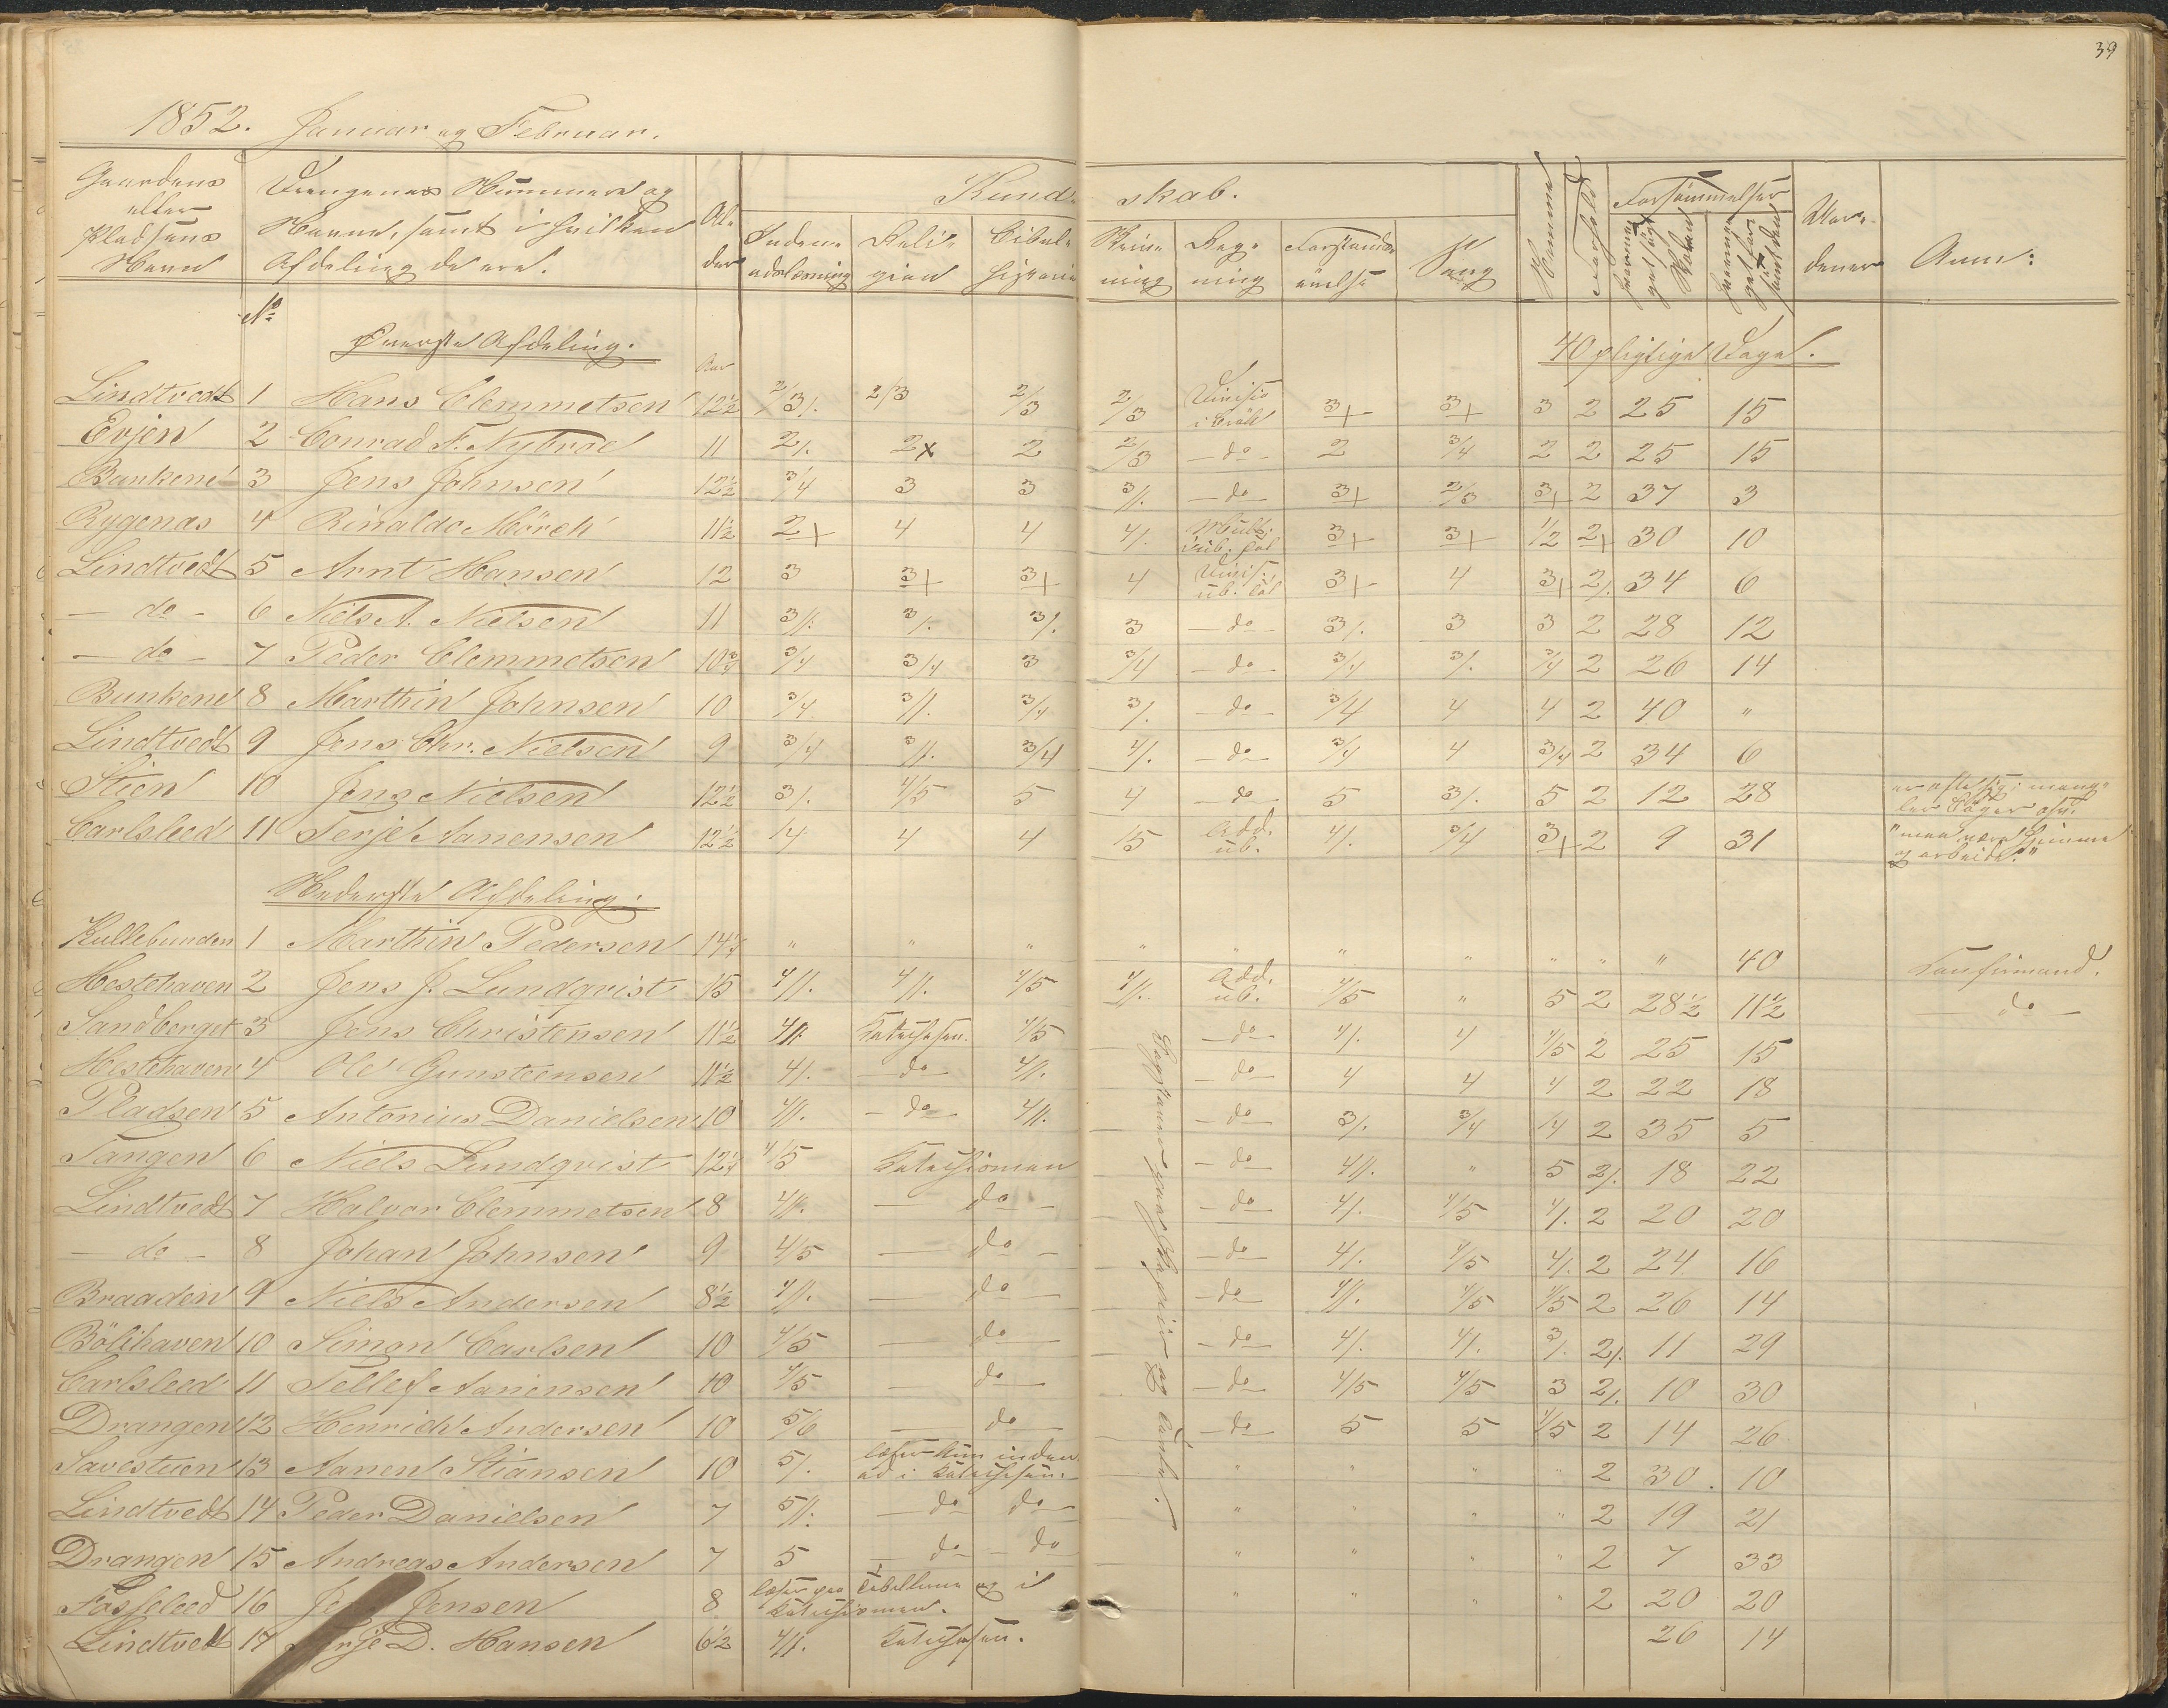 39
1852. Januar og Februar.
Gaardens eller Pladsens Navn | Drengenes Nummere og Navne, samt i hvilken Afdeling de ere. | Alder | Kundskab. | Forsømmelser | Anm:
Indenadslæsning | Religion | Bibelhistorie | Skrivning | Regning | Forstandsøvelse | Sang | Nemme | Forhold
No
Øverste Afdeling. | 40 pligtige Dage.
Aar
Lindtvedt 1 Hans Clemmetsen 12½ 2/3/. 2/3 2/3 2/3 Divisio i Brøk 3+ 3+ 3 2 25 15
Evjen 2 Conrad F. Nybroe 11 2/. 2x 2 2/3 - do - 2 3/4 2 2 25 15
Bunkene 3 Jens Johnsen 12½ 3/4 3 3 3//. - do - 3+ 2/3 3+ 2 37 3
Rygenæs 4 Rinaldo Mörch 11½ 2+ 4 4 4/. Mult. ub. 3+ 3+ 1/2 2+ 30 10
Lindtvedt 5 Arnt Hansen 12 3 3+ 3+ 4 Divis. ub. 3+ 4 3+ 2/. 34 6
- do - 6 Niels A. Nielsen 11 3//. 3/. 3/. 3 - do - 3/. 3 3 2 28 12
- do - 7 Peder Clemmetsen 10¾ 3/4 3/4 3 3/4 - do - 3/4 3/. 3/4 2 26 14
Bunkene 8 Marthin Johnsen 10 3/4 3//. 3/4 3/. - do - 3/4 4 4 2 40 "
Lindtvedt 9 Jens Chr. Nielsen 9 3/4 3//. 3/4 4/. - do - 3/4 4 3/4 2 34 6
Stien 10 Jens Nielsen 12½ 3/. 4/5 5 4 - do - 5 3/. 5 2 12 28 er ofte syg; mangler Bøger osv.
Carlsleed 11 Terje Aanensen 12½ 14 4 4 15 Add. ub. 4/. 3/4 3+ 2 9 31 "maa være hjemme og arbeide."
Nederste Afdeling.
Kullebunden 1 Marthin Pedersen 14¼ " " " " " " " " " " 40 Confirmand.
Hestehaven 2 Jens J. Lundqvist 15 4//. 4//. 4/5 4//. Add. ub. 4/5 " 5 2 28½ 11½ - do -
Sandberget 3 Jens Christensen 11½ 4//. 4/5 - do - 4/. 4 4/5 2 25 15
Hestehaven 4 Ole Gunsteensen 11½ 4/. - do - 4//. - do - 4 4 4 2 22 18
Pladsen 5 Antonius Danielsen 10 4//. - do - 4//. - do - 3/. 3/4 14 2 35 5
Tangen 6 Niels Lundqvist 12¼ 4/5 Katechismen - do - 4//. " 5 2/. 18 22
Lindtvedt 7 Halvor Clemmetsen 8 4//. - do - - do - 4/. 4/5 4/. 2 20 20
- do - 8 Johan Johnsen 9 4/5 - do - - do - 4/. 4/5 4/. 2 24 16
Braaden 9 Niels Andersen 8½ 4//. - do - - do - 4//. 4/5 4/5 2 26 14
Bölihaven 10 Simon Carlsen 10 4/5 - do - - do - 4/. 4/. 3/. 2/. 11 29
Carlsleed 11 Tellef Aanensen 10 4/5 - do - - do - 4/5 4/5 3 2/. 10 30
Drangen 12 Henrich Andersen 10 5/6 - do - - do - 5 5 4/5 2 14 26
Savestuen 13 Aanen Stiansen 10 5/. læser kun indenad i " " " " 2 30. 10
Lindtvedt 14 Peder Danielsen 7 5//. - do - do - " " " " 2 19 21
Drangen 15 Andreas Andersen 7 5 - do - do " " " " 2 7 33
Fosseleed 16 Jensen 8 læser paa Tabellerne og i Katechismen. " " " " 2 20 20
Lindtvedt 17 Terje D. Hansen 6½ 4//. 26 14